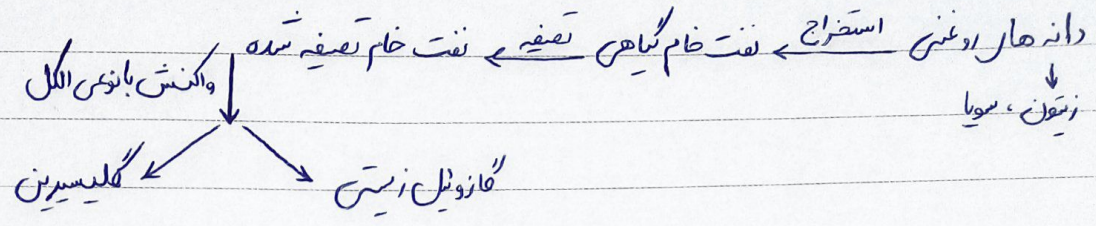 دانه های روغنی استخراج نفت خام گیاهی تصفیه نفت خام تصفیه شده
زیتون، سویا
واکنش با نوعی الکل
گازوئیل زیستی گلیسیرین